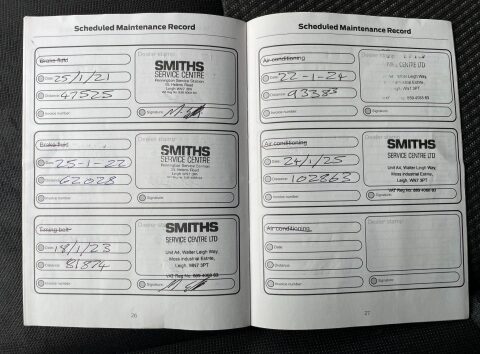 Scheduled Maintenance Record
Brake fluid
Dealer stamp
Date 25/1/21
Distance 47525
Invoice number
SMITHS
SERVICE CENTRE
Pennington Service Station
Leigh WN7
Signature
Brake fluid
Dealer stamp
25-1-22
62028
Invoice number
SMITHS
SERVICE CENTRE
Pennington Service Station
Signature
Timing belt
Date 18/1/23
Distance 81874
Invoice number
SMITHS
SERVICE CENTRE LTD
Unit A4, Walter Leigh Way,
Moss Industrial Estate,
Leigh. WN7 3PT
VAT Reg No. 889 4068 83
Signature
26
Scheduled Maintenance Record
Air conditioning
Dealer stamp
Date 22-1-24
Distance 93385
Invoice number
CENTRE LTD
Signature
Air conditioning
Date 24/1/25
Distance 102863
Invoice number
SMITHS
SERVICE CENTRE LTD
Unit A4, Walter Leigh Way,
Moss Industrial Estate,
Leigh. WN7 3PT
VAT Reg No. 889 4068 83
Signature
Air conditioning
Dealer stamp
Date
Distance
Invoice number
Signature
27